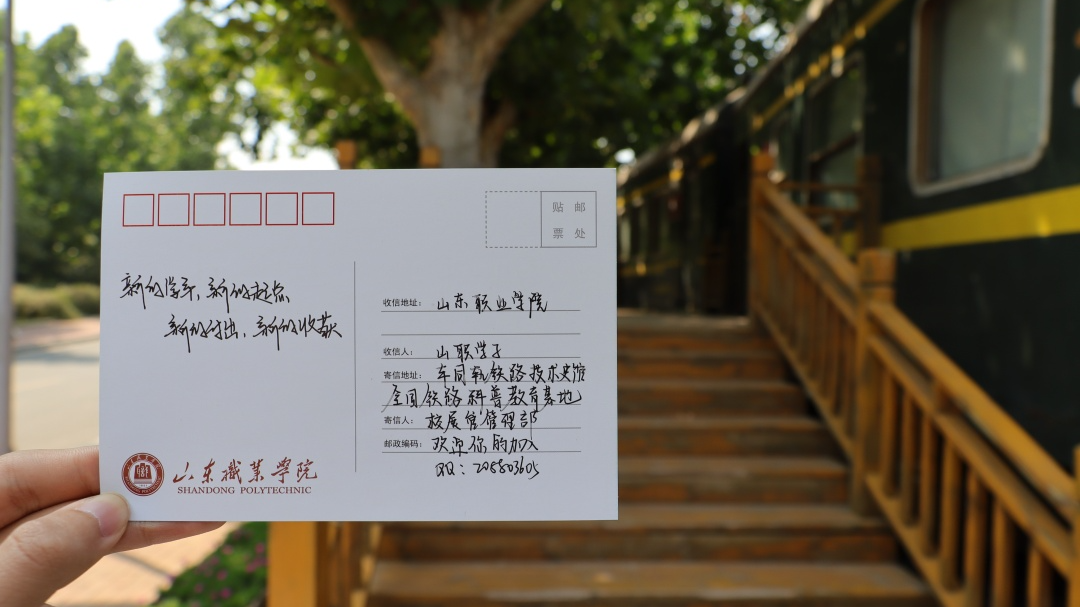 贴 邮
票 处
新的学年,新的起点
新的付出,新的收获
收信地址: 山东职业学院
收信人: 山职学子
寄信地址: 车同轨铁路技术史馆
全国铁路科普教育基地
寄信人: 校展馆管理部
邮政编码: 欢迎你的加入
QQ: 208803605
山东職業學院
SHANDONG POLYTECHNIC